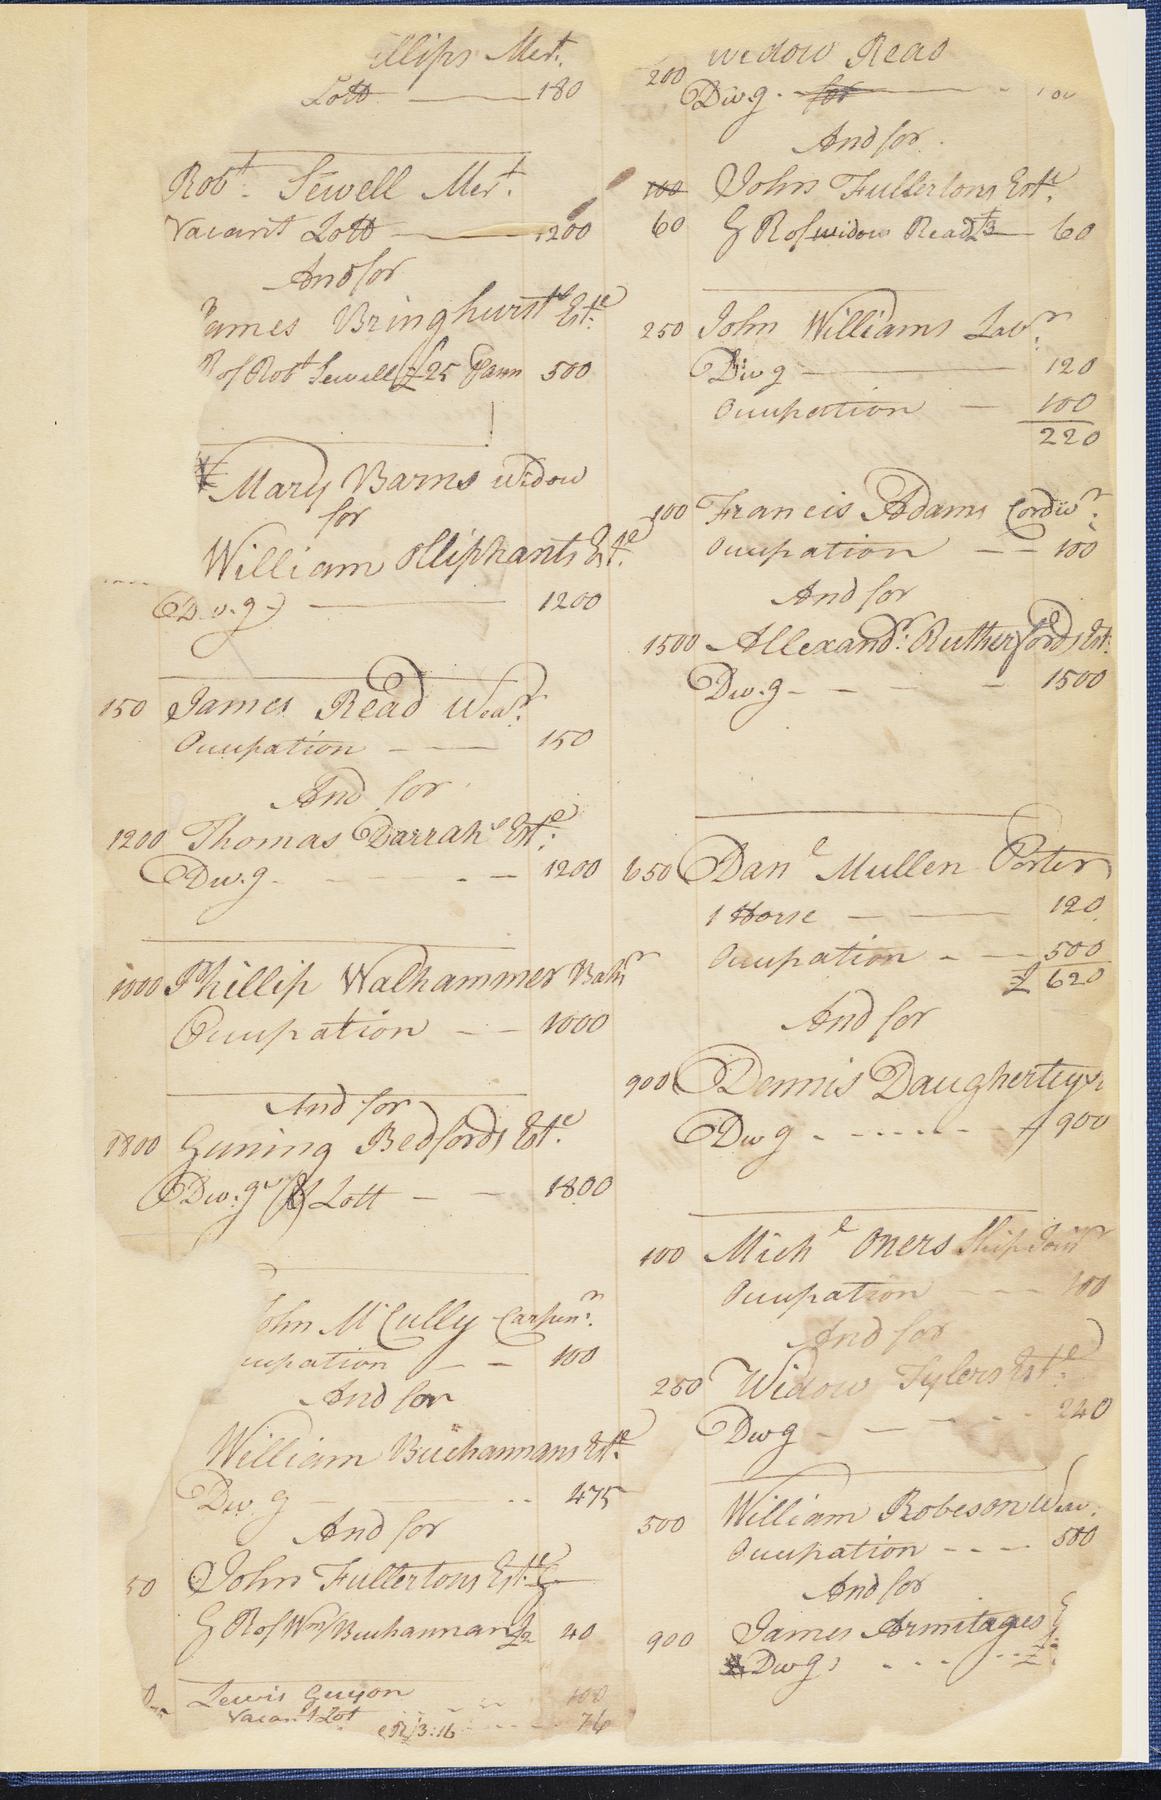 illips Mert.
Lott 180
Robt. Sewell Mert.
Vacant Lott 1200
And for
James Bringhursts Este.
R of Robt Sewell £25 Pann 500
Mary Barns widow
for
William Olliphants Este.
Dw.g 1200
150 James Read Wear.
Occupation 150
And for
1200 Thomas Darrahs Este.
Dw.g 1200
1000 Phillip Walhammer Bakr
Occupation 1000
And for
1800 Guning Bedfords Este.
Dw.g & Lott 1800
John McCully Carpenr.
cupation 100
And for
William Buchannans Este.
Dw.g 475
And for
50 John Fullertons Este.
G R of Wm Buchannan £2 40
Lewis Guyon 100
Vacant Lot
G R £3:16 76
widow Read
200 Dwg. for
And for
100 John Fullertons Este.
60 G R of widow Read £3 60
250 John Williams Labr.
Dwg 120
Occupation 100
220
100 Francis Adams Cordwr.
Occupation 100
And for
1500 Allexandr. Rutherfords Est.
Dw.g 1500
650 Danl Mullen Porter
1 Horse 120
Occupation 500
£ 620
And for
900 Dennis Daughertys
Dwg 900
100 Michl Oners Ship Joinr
Occupation 100
And for
250 Widow Tylers Este.
Dwg 240
500 William Robeson Weav.
Occupation 500
And for
900 James Armitages E
Dwg £